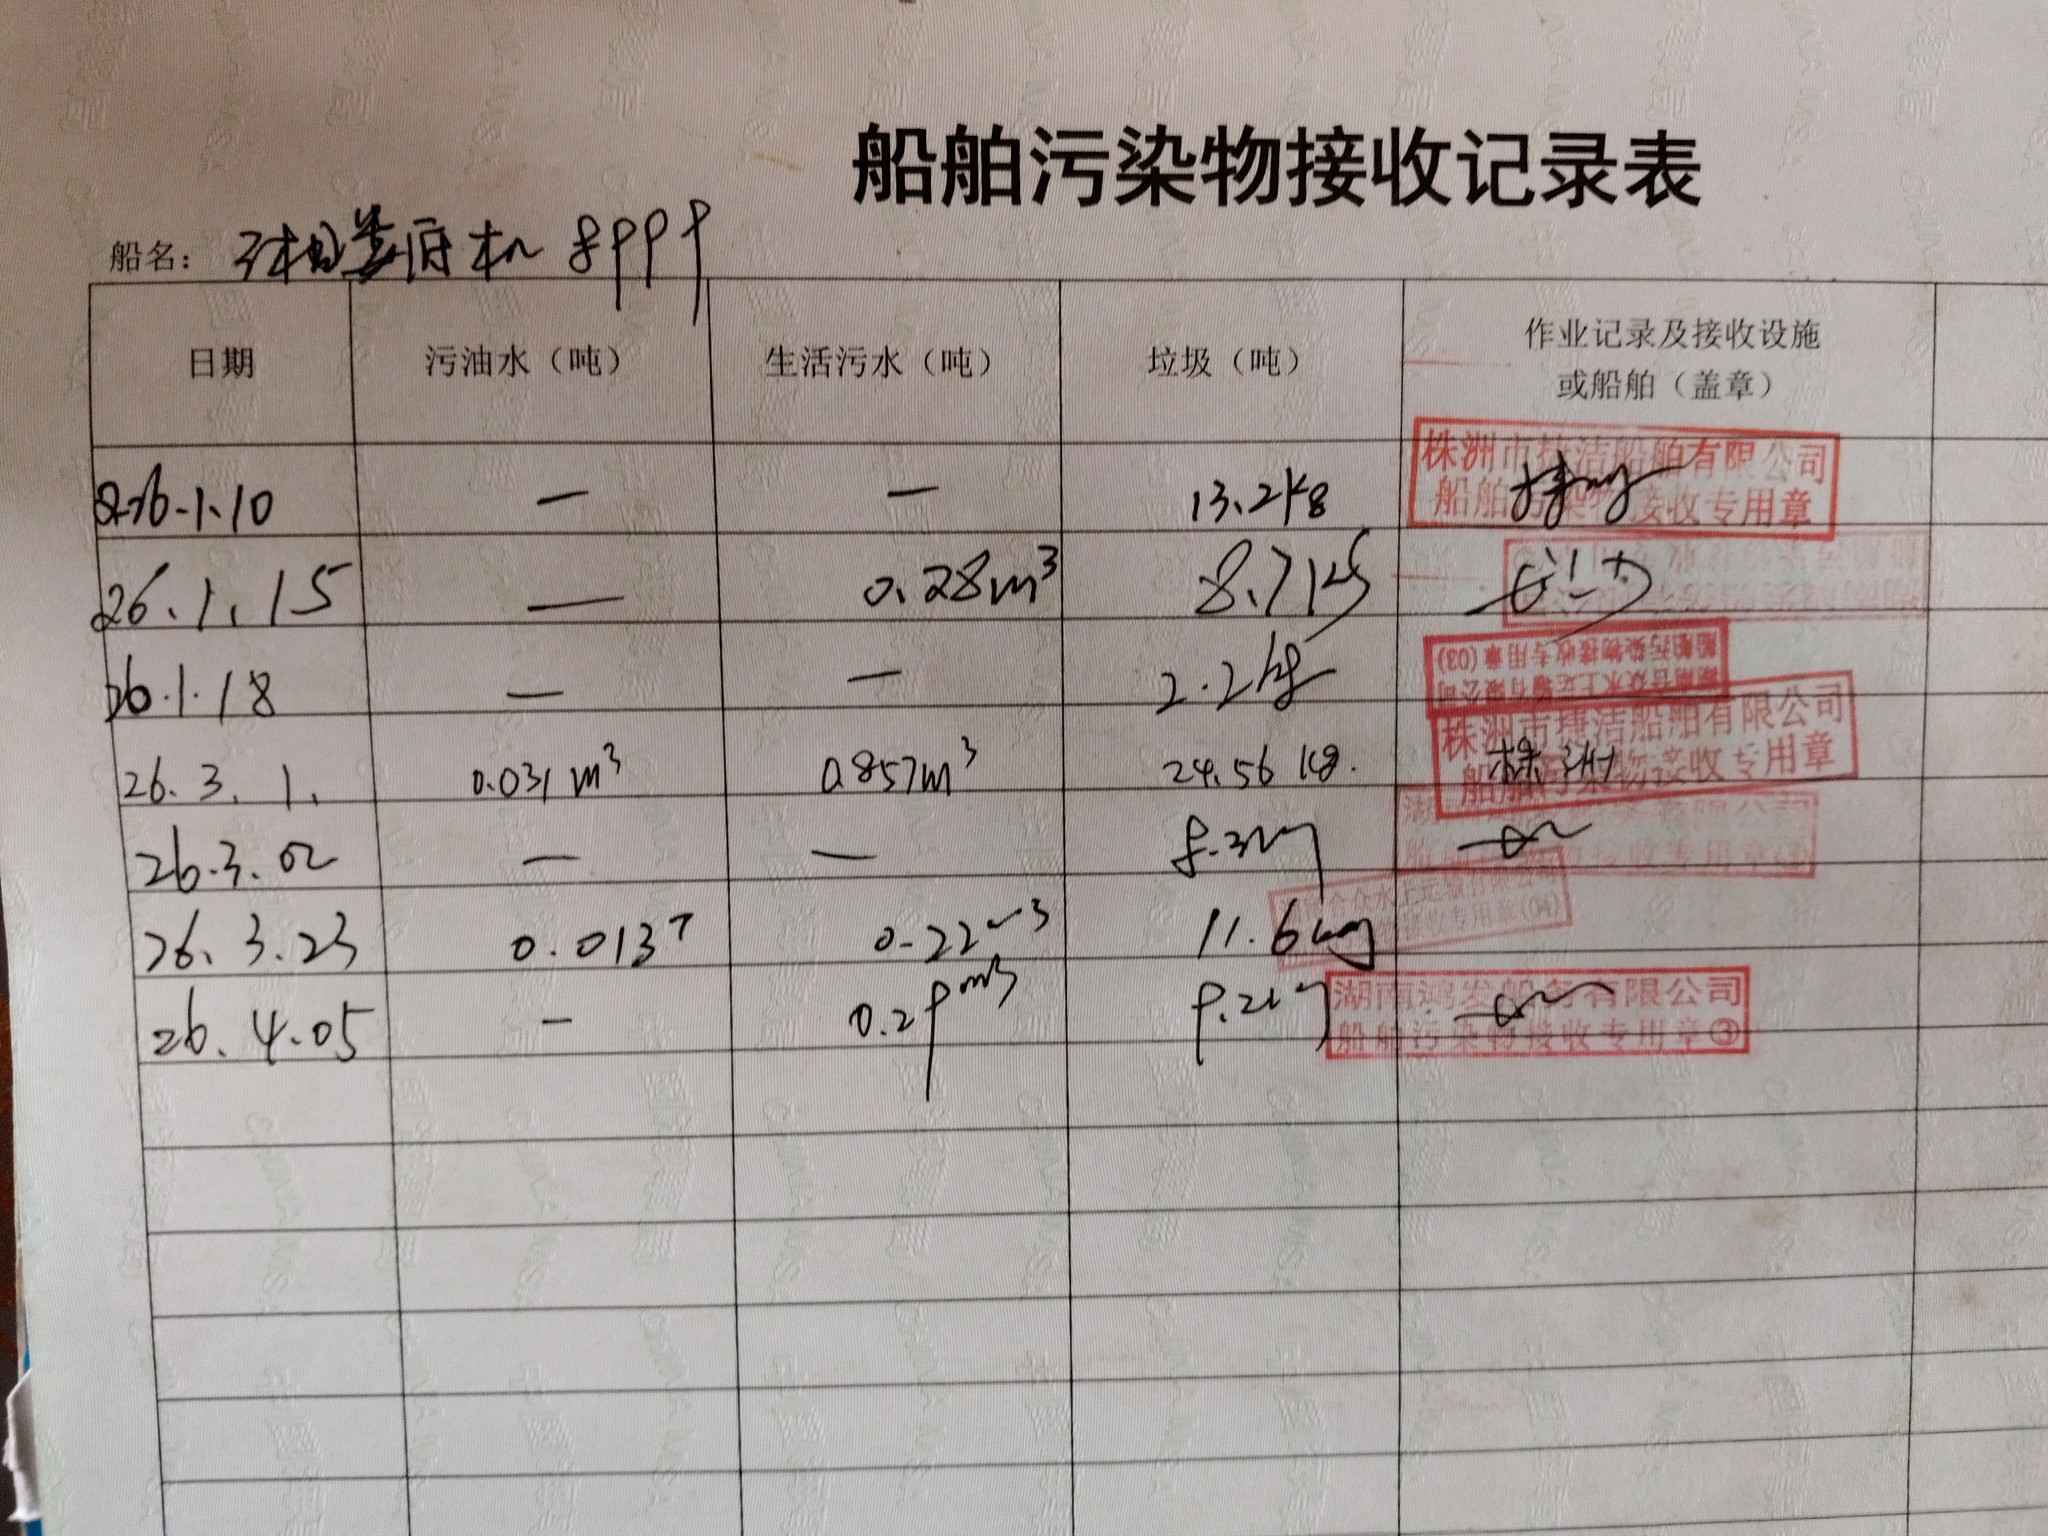 船舶污染物接收记录表
船名：湘娄底机 8999
日期 污油水（吨） 生活污水（吨） 垃圾（吨） 作业记录及接收设施
或船舶（盖章）
26.1.10 — — 13.2kg
株洲市捷洁船舶有限公司
船舶污染物接收专用章
26.1.15 — 0.28m³ 8.7kg
26.1.18 — — 2.2kg
船舶污染物接收专用章(03)
26.3.1. 0.031m³ 0.857m³ 24.56kg. 株洲
株洲市捷洁船舶有限公司
船舶污染物接收专用章
26.3.02 — —
接收专用章
26.3.23 0.013T 0.22m³ 11.6kg
合众水上运输有限公司
接收专用章(04)
26.4.05 — 0.29m³ 9.2kg
湖南鸿发船务有限公司
船舶污染物接收专用章③